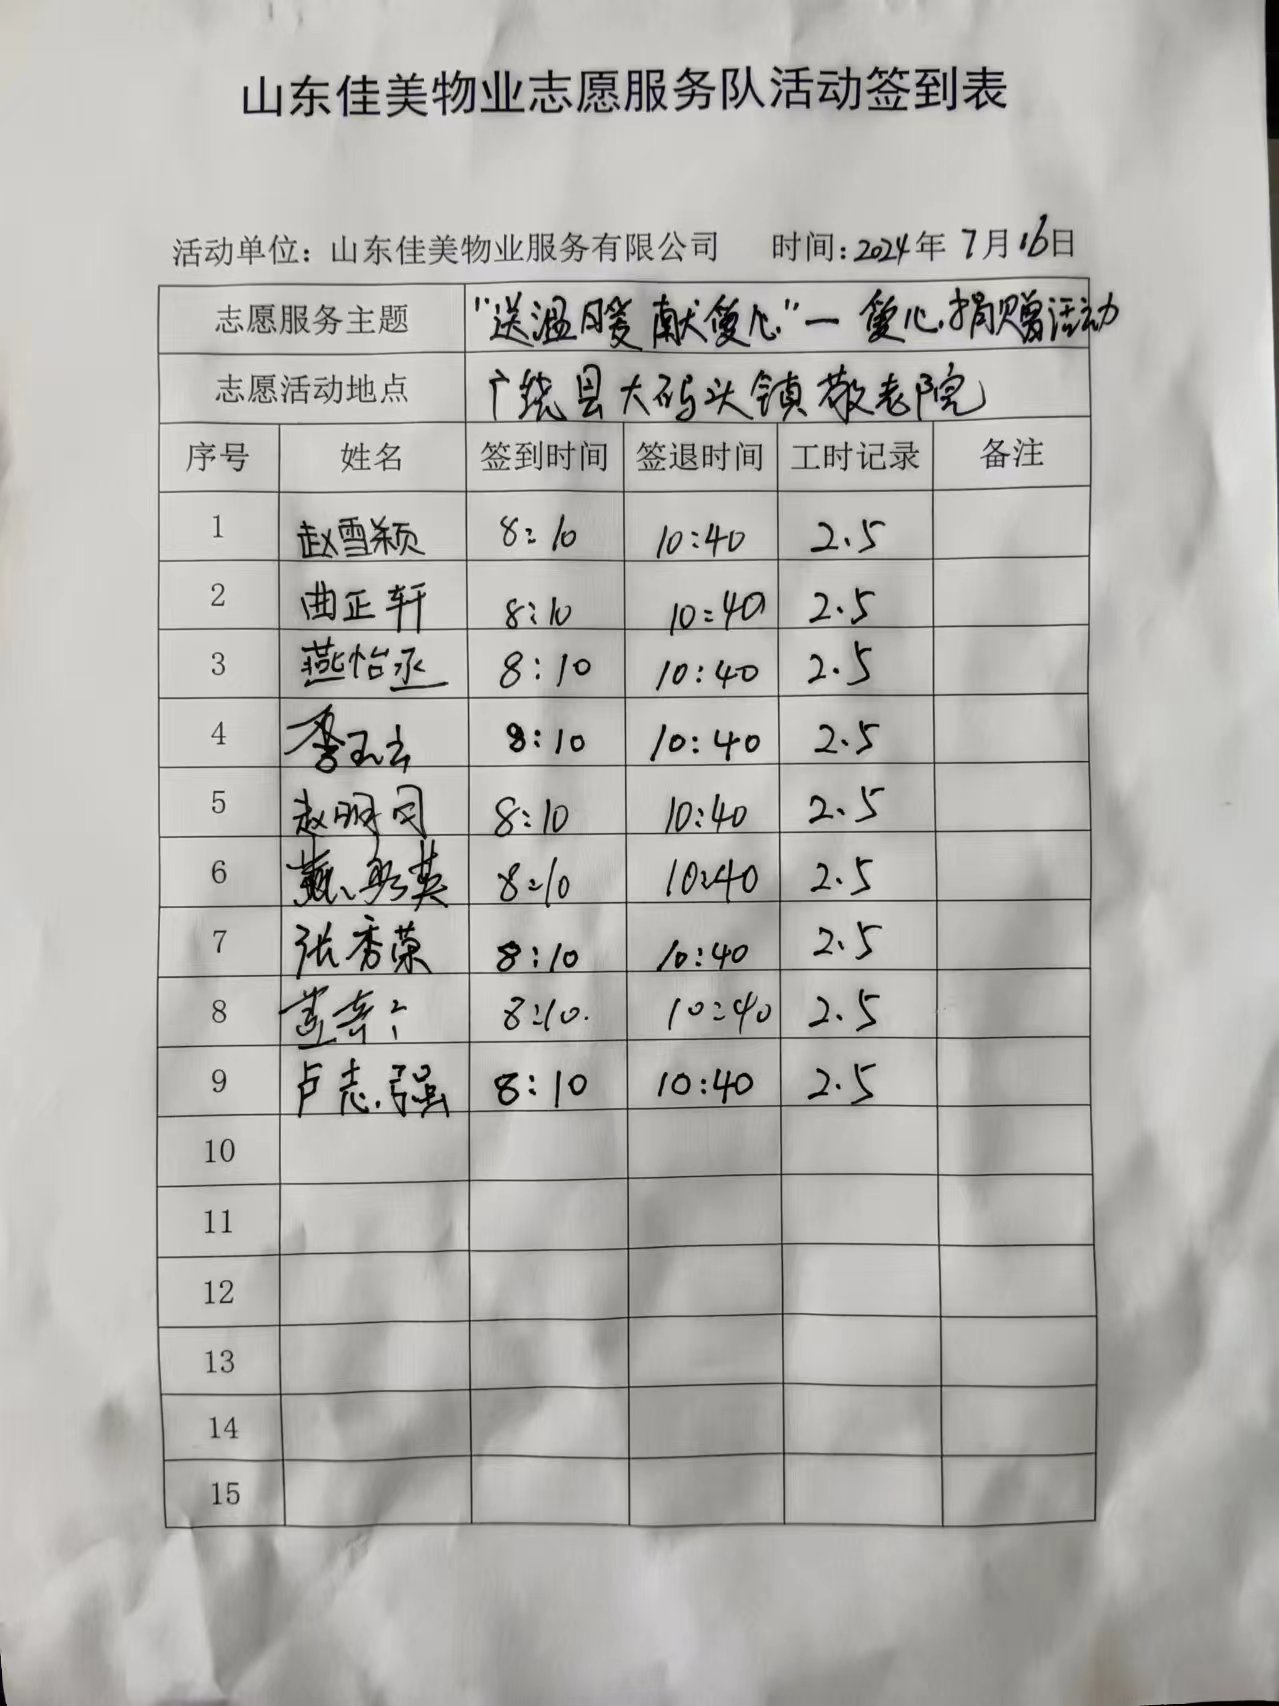 山东佳美物业志愿服务队活动签到表
活动单位：山东佳美物业服务有限公司 时间：2024年7月16日
志愿服务主题 "送温暖 献爱心"一爱心捐赠活动
志愿活动地点 广饶县大码头镇敬老院
序号 姓名 签到时间 签退时间 工时记录 备注
1 赵雪颖 8:10 10:40 2.5
2 曲正轩 8:10 10:40 2.5
3 燕怡丞 8:10 10:40 2.5
4 李玉 8:10 10:40 2.5
5 赵明 8:10 10:40 2.5
6 英 8:10 10:40 2.5
7 张秀荣 8:10 10:40 2.5
8 8:10. 10:40 2.5
9 卢志强 8:10 10:40 2.5
10
11
12
13
14
15